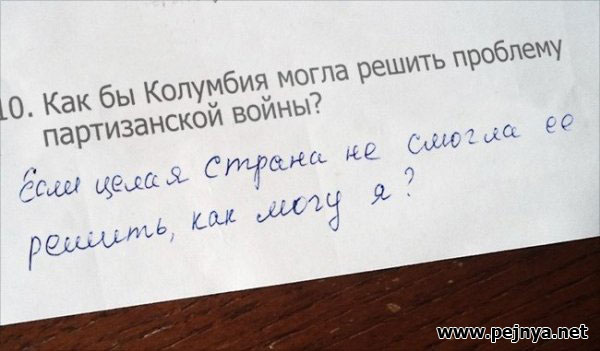 10. Как бы Колумбия могла решить проблему
партизанской войны?
Если целая страна не смогла ее
решить, как могу я?
www.pejnya.net